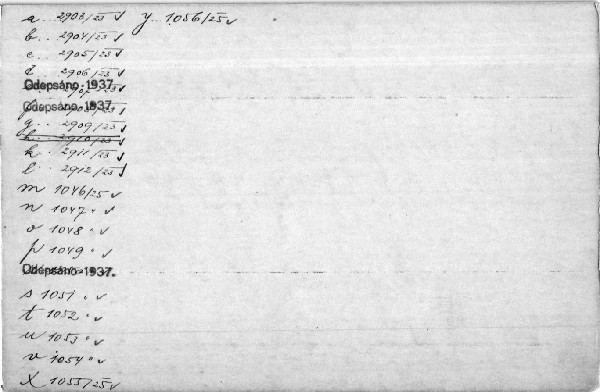 a.. 2903/23 √ y.. 1056/25 √
b.. 2904/23 √
c.. 2905/23 √
č 2906/23 √
Odepsáno 1937.
Odepsáno 1937.
g.. 2909/23 √
h.. 2910/23 √
k.. 2911/23 √
l.. 2912/23 √
m 1046/25 √
n 1047 " √
o 1048 " √
p 1049 " √
Odepsáno 1937.
s 1051 " √
t 1052 " √
u 1053 " √
v 1054 " √
x 1055/25 √